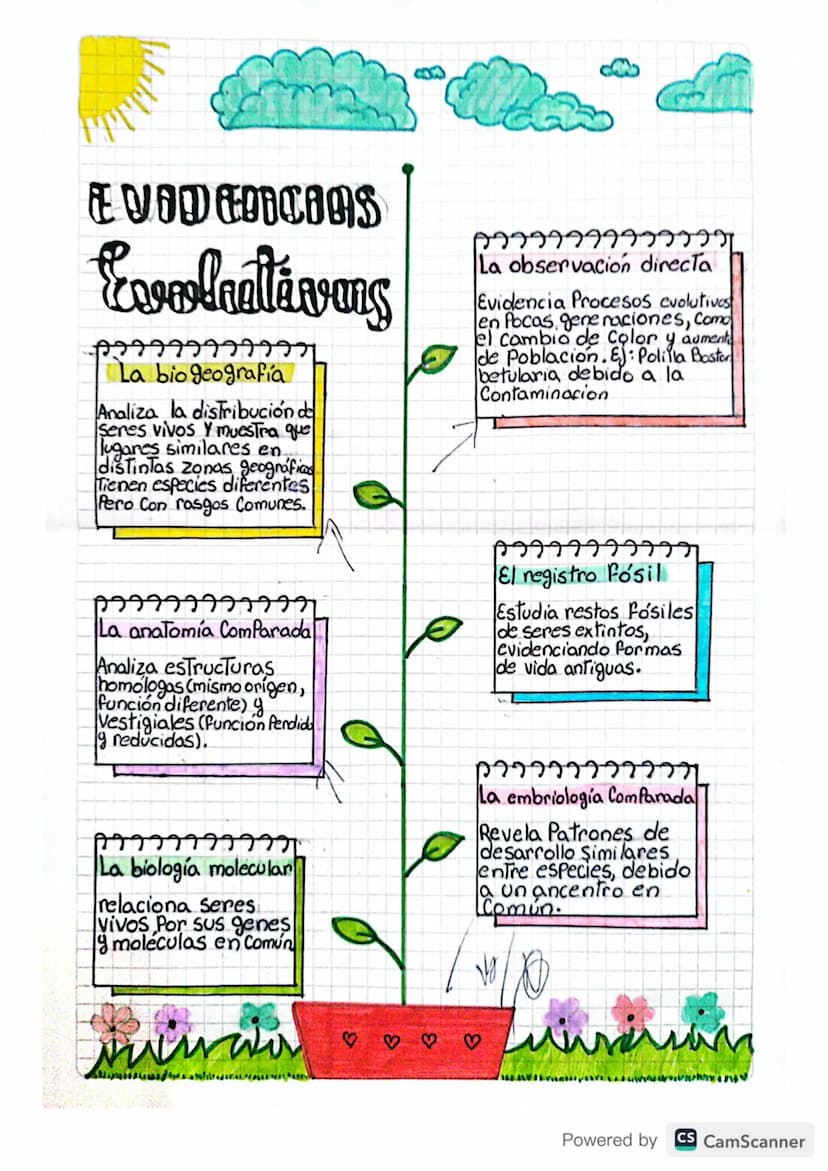 EVIDENCIAS
Evolutivas
La biogeografía
Analiza la distribución de
seres vivos y muestra que
lugares similares en
distintas zonas geográficas
Tienen especies diferentes
Pero con rasgos comunes.
La anatomía Comparada
Analiza estructuras
homólogas (mismo origen,
función diferente) y
Vestigiales (función Perdida
y reducidas).
La biología molecular
relaciona seres
vivos Por sus genes
y moléculas en Común
La observación directa
Evidencia Procesos evolutivos
en Pocas generaciones, Como
el cambio de Color y aumento
de Población. Ej: Polilla
betularia debido a la
Contaminacion
El registro fósil
Estudia restos fósiles
de seres extintos,
evidenciando formas
de vida antiguas.
La embriología Comparada
Revela Patrones de
desarrollo similares
entre especies, debido
a un ancentro en
Común.
Powered by CS CamScanner